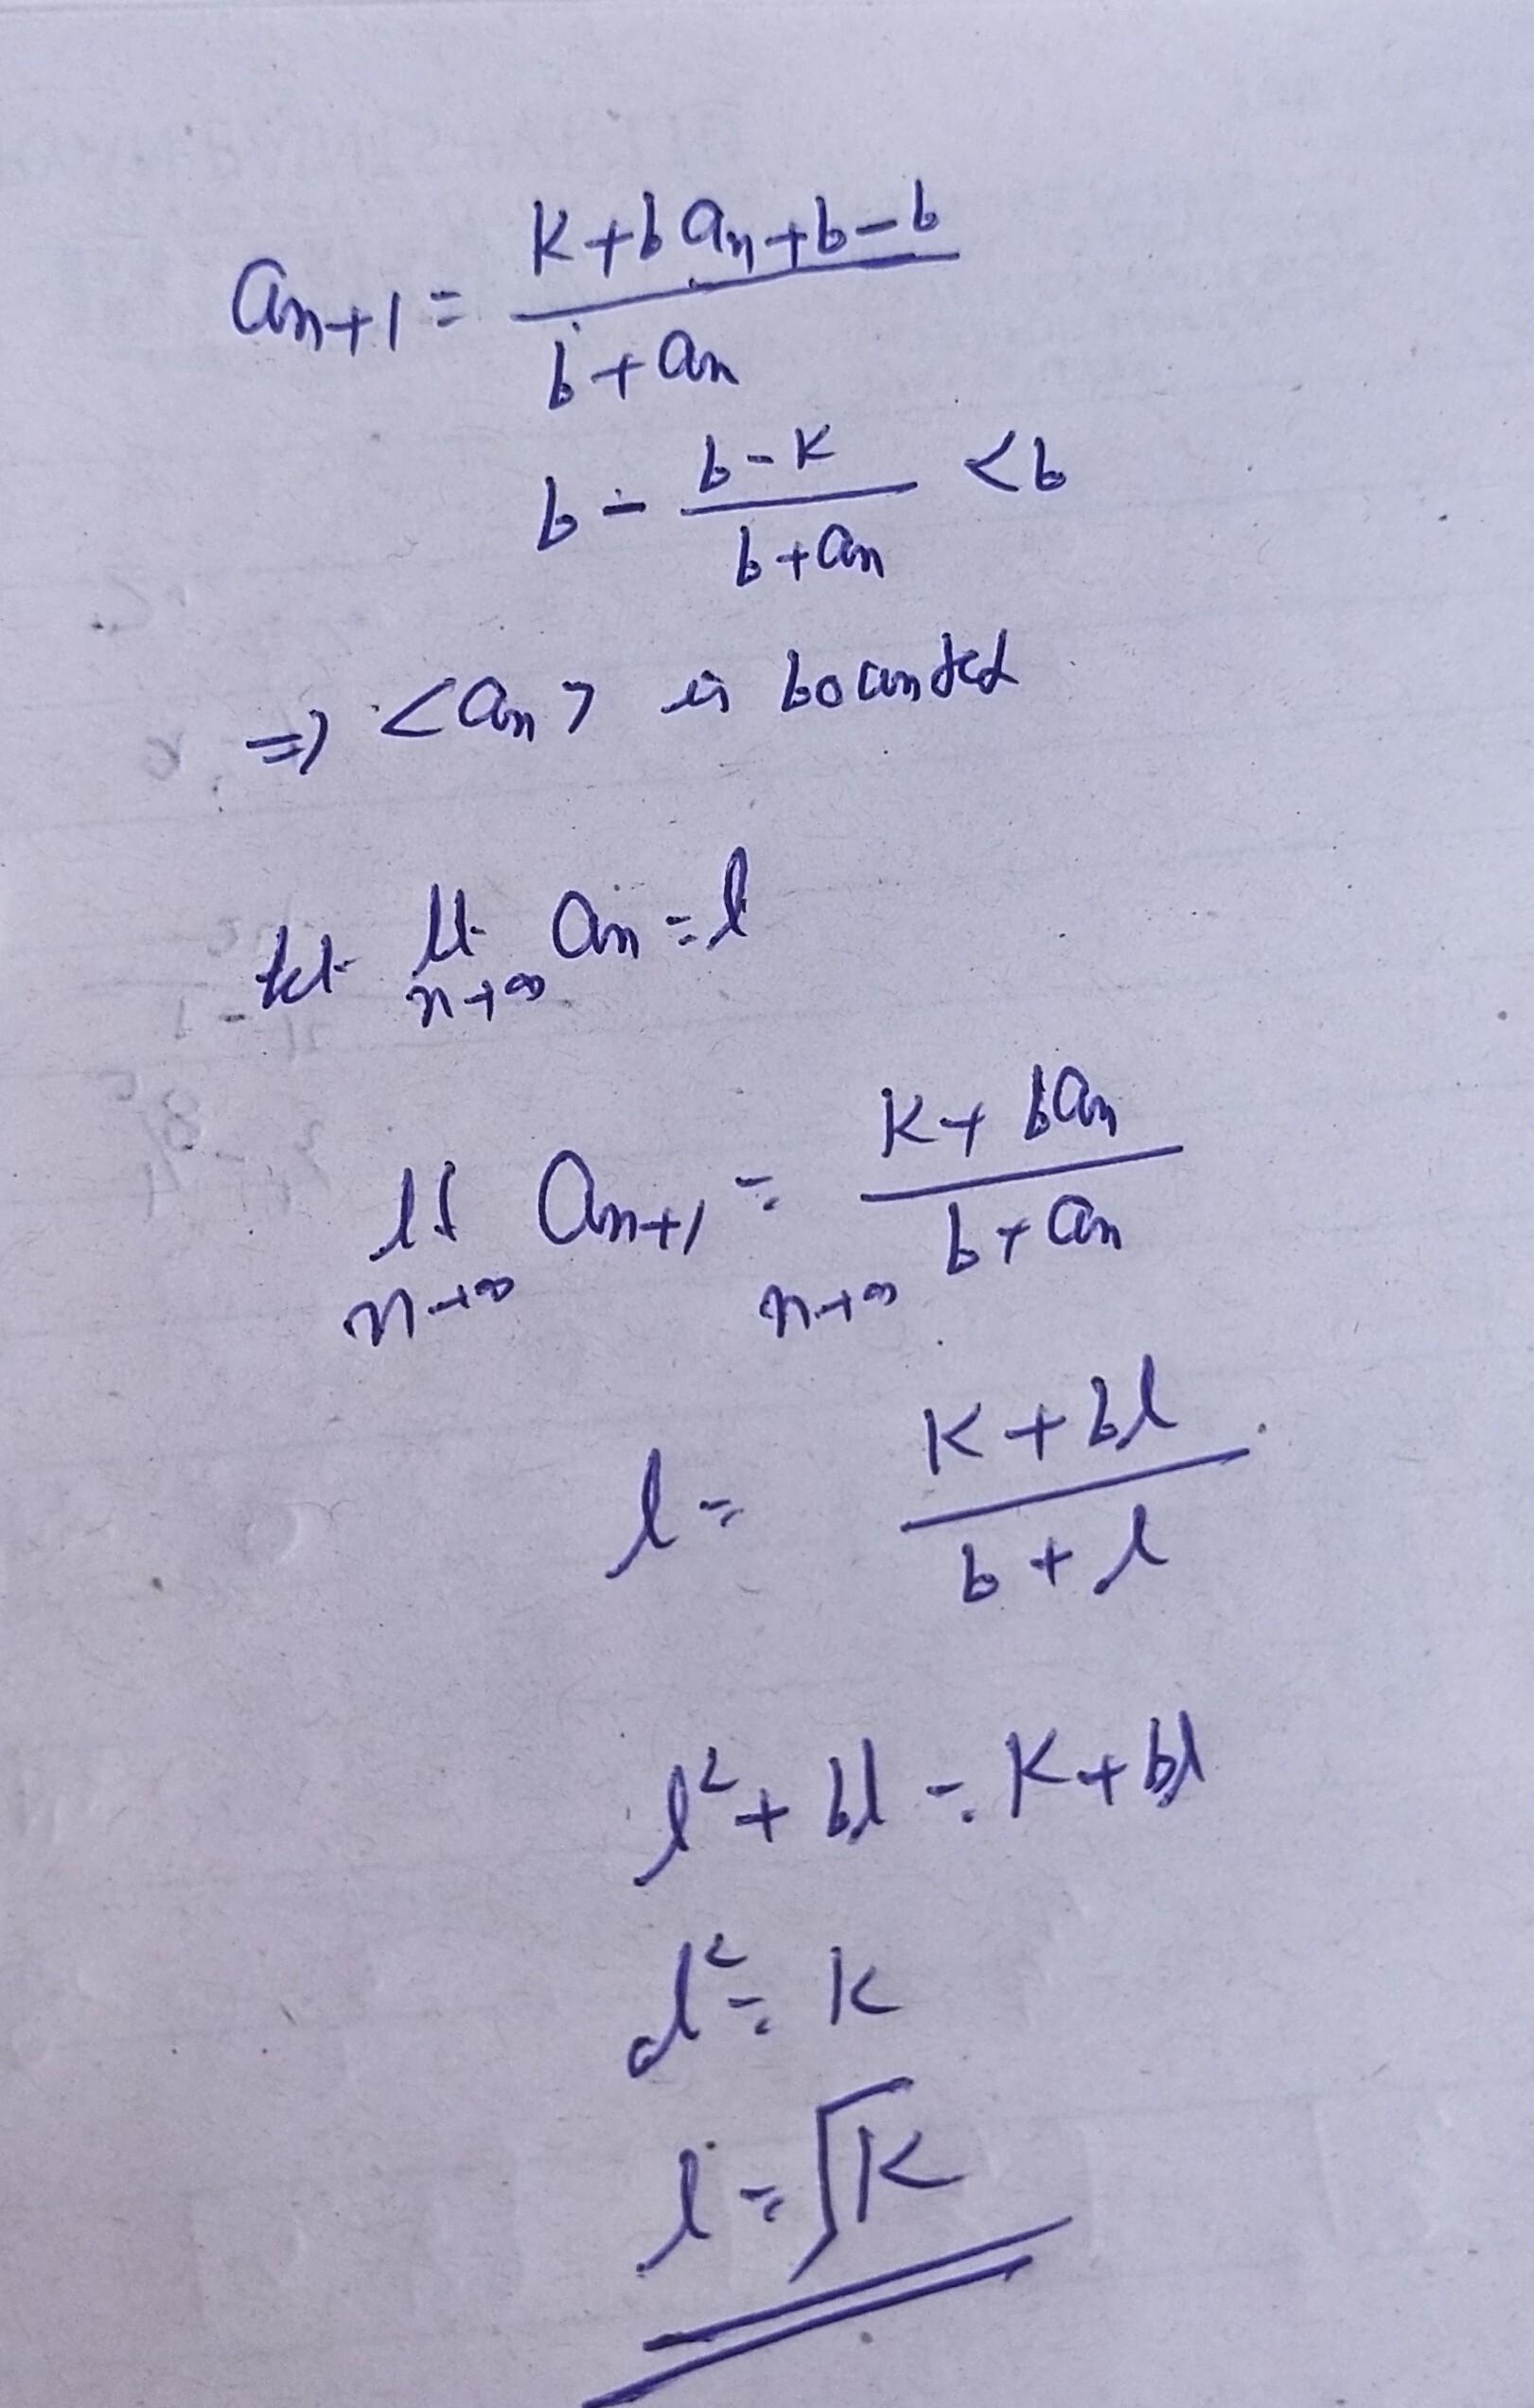 a_{n+1} = \frac{K + b a_n + b - b}{b + a_n}
b - \frac{b - K}{b + a_n} < b
⇒ <a_n> is bounded
let lt_{n→∞} a_n = l
lt_{n→∞} a_{n+1} = _{n→∞} \frac{K + b a_n}{b + a_n}
l = \frac{K + bl}{b + l}
l² + bl = K + bl
l² = K
l = √K